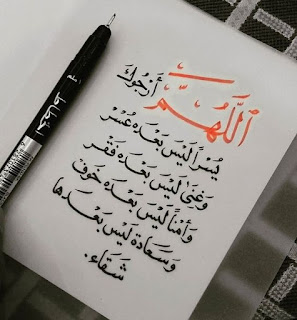 اللَّهُمَّ أَرْجُوكَ
يُسْراً لَيْسَ بَعْدَه عُسْر
وَغِنىً لَيْسَ بَعْدَه فَقْر
وَأَمْناً لَيْسَ بَعْدَه خَوف
وَسَعَادَة لَيْسَ بَعْدهَا
شَقَاء.
الخطاط